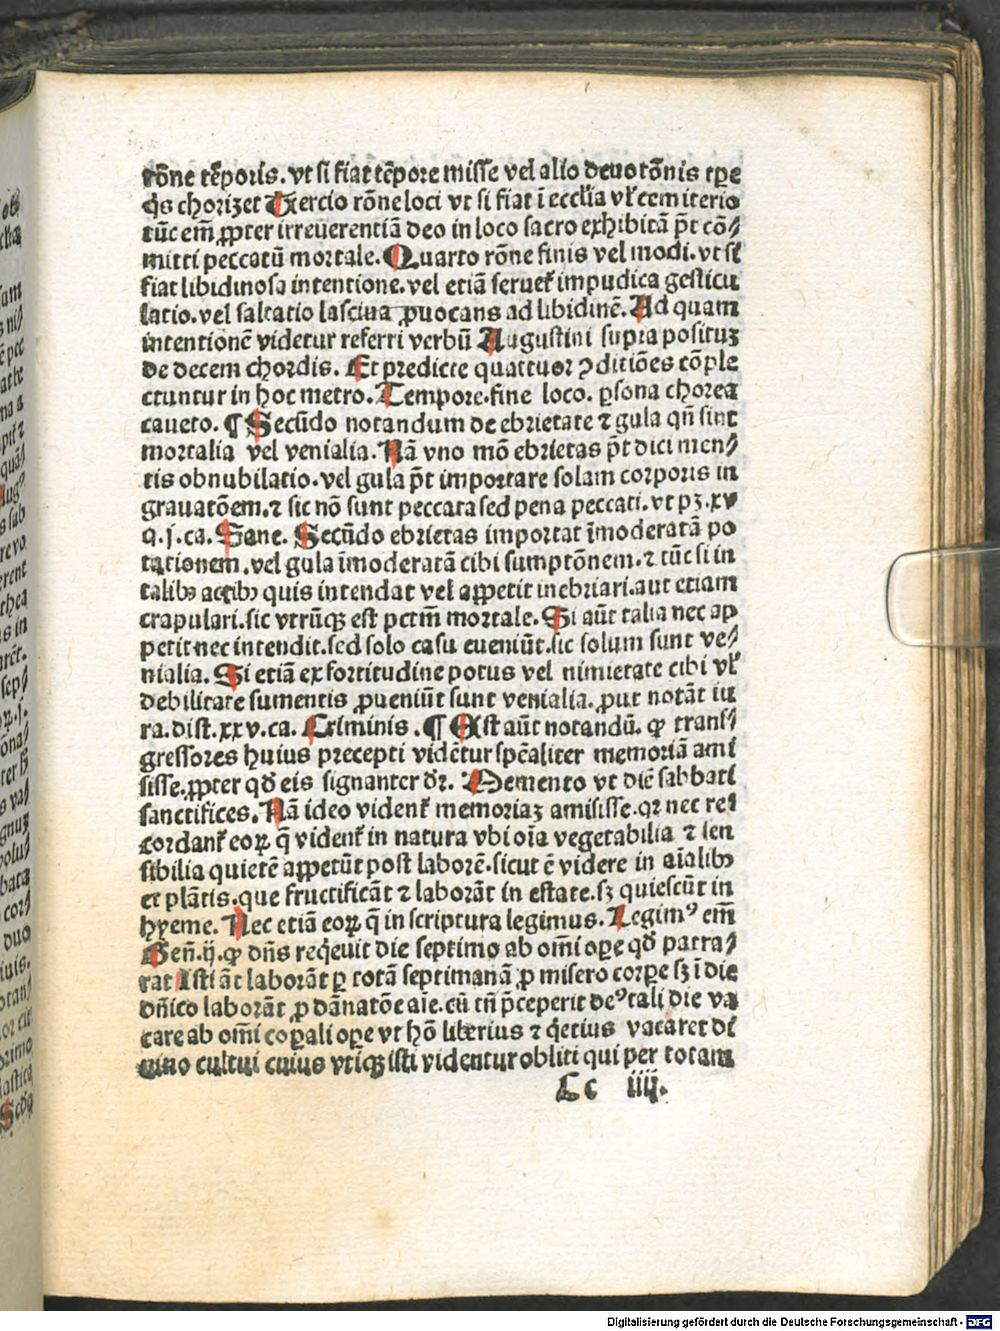 rōne tēporis. vt si fiat tēpore misse vel alio deuotōnis tꝑe
q̇s chorizet Tercio rōne loci vt si fiat ī eccƚia vƚ cemiterio
tūc em̄ ꝓpter irreuerentiā deo in loco sacro exhibitā p̄t cō⸗
mitti peccatū mortale. Quarto rōne finis vel modi. vt si
fiat libidinosa intentione. vel etiā seruet᷑ impudica gesticu
latio. vel saltatio lasciua ꝓuocans ad libidinē. Ad quam
intentionē videtur referri verbū Augustini supra posituꝫ
de decem chordis. Et predicte quattuor ꝯditiōes cōple
ctuntur in hoc metro. Tempore. fine loco. ꝑsona chorea
caueto. ¶ Secūdo notandum de ebrietate ⁊ gula qn̄ sint
mortalia vel venialia. Nā vno mō ebrietas p̄t dici men⸗
tis obnubilatio. vel gula p̄t importare solam corporis in
grauatōem. ⁊ sic nō sunt peccata sed pena peccati. vt pꝫ. xv
q. j. ca. Sane. Secūdo ebrietas importat īmoderatā po
tationem. vel gula īmoderatā cibi sumptōnem. ⁊ tūc si in
talibꝫ actibꝫ quis intendat vel appetit inebriari. aut etiam
crapulari. sic vtrūqꝫ est pctm̄ mortale. Si aūt talia nec ap
petit nec intendit. sed solo casu eueniūt. sic solum sunt ve⸗
nialia. Si etiā ex fortitudine potus vel nimietate cibi vƚ
debilitate sumentis ꝓueniūt sunt venialia. ꝓut notāt iu
ra. dist. xxv. ca. Criminis. ¶ Est aūt notandū. ꝙ trans⸗
gressores huius precepti vidētur spēaliter memoriā ami
sisse. ꝓpter qd̄ eis signanter dr̄. Memento vt diē sabbati
sanctifices. Nā ideo vident᷑ memoriaꝫ amisisse. qꝛ nec re⸗
cordant᷑ eoꝝ q̄ vident᷑ in natura vbi oīa vegetabilia ⁊ sen
sibilia quietē appetūt post laborē. sicut ē videre in aīalibꝫ
et plātis. que fructificāt ⁊ laborāt in estate. sꝫ quiescūt in
hyeme. Nec etiā eoꝝ q̄ in scriptura legimus. Legimꝰ em̄
Gen̄. ij. ꝙ dn̄s reqͥeuit die septimo ab om̄i oꝑe qd̄ patra⸗
rat Isti āt laborāt ꝑ totā septimanā ꝓ misero corꝑe sꝫ ī die
dn̄ico laborāt ꝓ dānatōe aīe. cū tn̄ p̄ceperit deꝰ tali die va
care ab om̄i coꝑali oꝑe vt hō liberius ⁊ qͥetius vacaret di
uino cultui cuius vtiqꝫ isti videntur obliti qui per totam
Cc iiij.
Digitalisierung gefördert durch die Deutsche Forschungsgemeinschaft - DFG